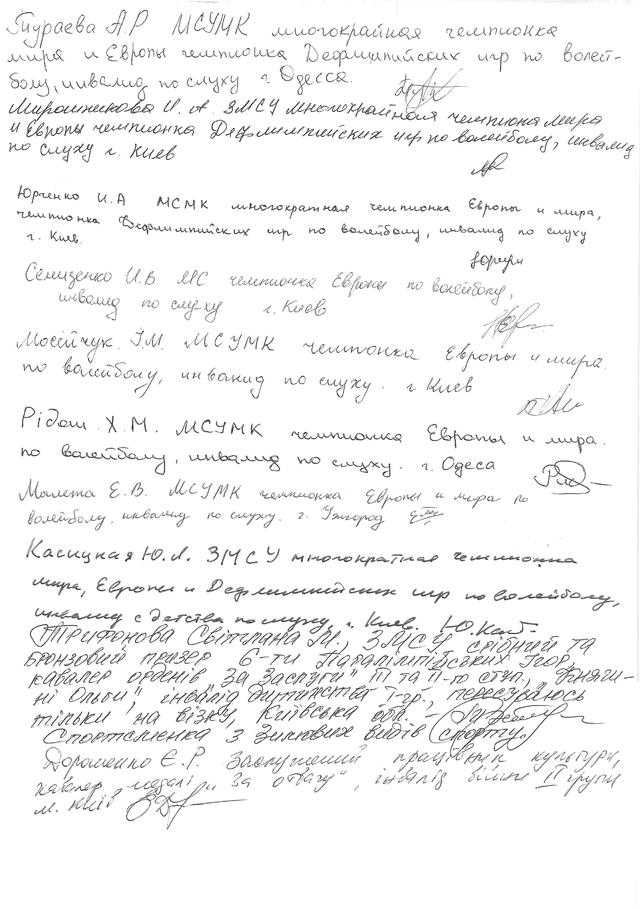 Тураева А.Р МСУМК многокрайная чемпионка
мира и Европы чемпионка Дефлимпийских игр по волей-
болу, инвалид по слуху г. Одесса.
Мирошникова И. А ЗМСУ многократная чемпиона мира
и Европы чемпионка Дефлимпийских игр по волейболу, инвалид
по слуху г. Киев
Юрченко И.А МСМК многократная чемпионка Европы и мира,
чемпионка Дефлимпийских игр по волейболу, инвалид по слуху
г. Киев.
Семизенко И.В МС чемпионка Европы по волейболу,
инвалид по слуху г. Киев
Мосейчук. І.М. МСУМК чемпонка Европы и мира.
по волейболу, инвалид по слуху. г. Киев
Рідош. Х.М. МСУМК чемпионка Европы и мира.
по волейболу, инвалид по слуху. г. Одеса
Малета Е.В. МСУМК чемпионка Европы и мира по
волейболу, инвалид по слуху. г. Ужгород
Касицкая Ю.Л. ЗМСУ многократная чемпионка
мира, Европы и Дефлимпийских игр по волейболу,
инвалид с детства по слуху, г. Киев.
Трифонова Світлана М., ЗМСУ, срібний та
бронзовий призер 6-ти Паралімпійських Ігор,
кавалер орденів "За Заслуги" III та II-го ступ., "Княги-
ні Ольги", інвалід дитинства I-гр., пересуваюсь
тільки на візку, Київська обл.
Спортсменка з Зимових видів спорту.
Дорошенко Є.Р. Заслужений працівник культури,
кавалер медалі "За отвагу", інвалід війни II групи
м. Київ